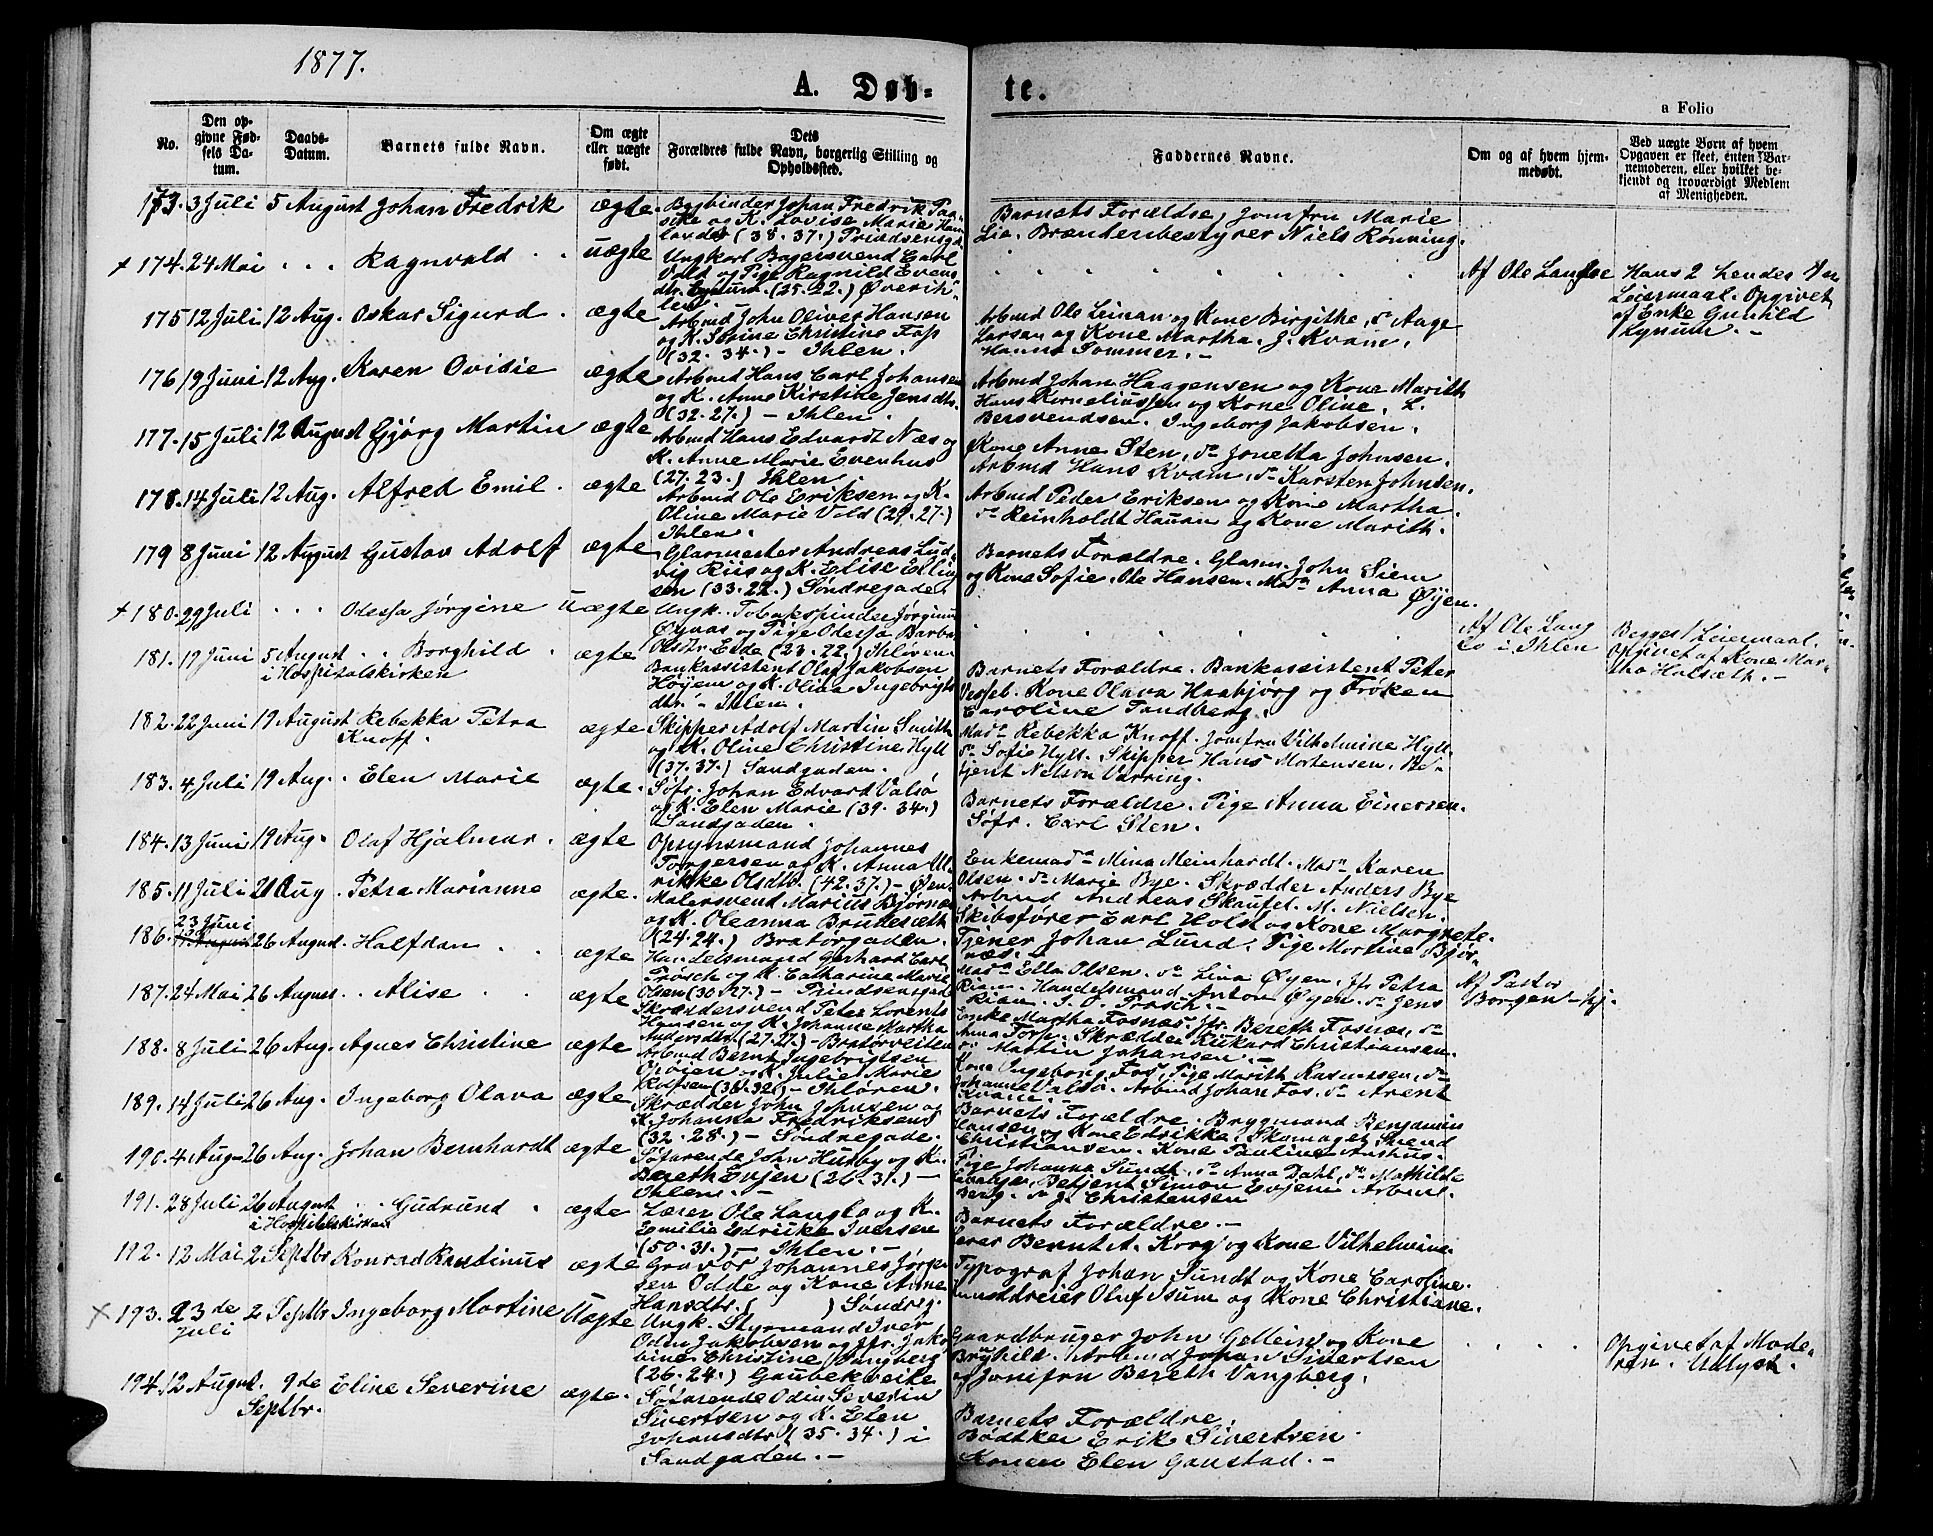 1877.
A. Døb-
te.
a Folio
No.
Den op-
givne Fød-
sels Da-
tum.
Daabs-
Datum.
Barnets fulde Navn.
Om ægte
eller uægte
født.
Dets
Forældres fulde Navn, borgerlig Stilling og
Opholdssted.
Faddernes Navne.
Om og af hvem hjem-
medøbt.
Ved uægte Børn af hvem
Opgaven er skeet, enten Bar-
nemoderen, eller hvilket be-
kjendt og troværdigt Medlem
af Menigheden.
173. 3 Juli 5 August Johan Fredrik ægte.
Bogbinder Johan Fredrik
og K. Lovise Marie
(38. 37.) Prindsensgd.
Barnets Forældre, Jomfru Marie
Lie. Brænderibestyrer Niels Rønning.
+ 174. 24 Mai . . . Ragnvald . . uægte
Ungkarl Bagersvend Carl
Vold og Pige Ragnild Evens
dtr. Lynum. (25. 22.) Øvreih-
len.
Af Ole Langloe
Hans 2 hendes 1ste
Leiermaal. Opgivet
af Enke Gunild
Lynum. -
175 12 Juli 12 Aug. Oskar Sigurd . ægte
Arbmd John Oliver Hansen
og K. Serine Christine Foss
(32. 34.) - Ihlen.
Arbmd Ole Leinan og Kone Birgithe, do Aage
Larsen og Kone Martha. J. Kvam.
Hanna Sommer. -
176 19 Juni 12 Aug. Karen Ovidie ægte
Arbmd Hans Carl Johansen
og K. Anne Kirstine Jensdtr.
(32. 27.) - Ihlen.
Arbmd Johan Haagensen og Kone Marith
Hans Korneliussen og Kone Oline. L.
Bersvendsen. Ingeborg Jakobsen.
177. 15 Juli 12 August Gjørg Martin ægte
Arbmd Hans Edvardt Næs og
K. Anne Marie Evenhus
(27. 23.) Ihlen.
Kone Anne Sten, do Jonetta Johnsen.
Arbmd Hans Kvam, do Karsten Johnsen.
178. 14 Juli 12 Aug. Alfred Emil. ægte
Arbmd Ole Eriksen og K.
Oline Marie Vold (29. 27.)
Ihlen.
Arbmd Peder Eriksen og Kone Martha.
do Reinholdt Hauan og Kone Marith.
179 8 Juni 12 August Gustav Adolf ægte
Glarmester Andreas Lud-
vig Riis og K. Elise Elling
sen (33. 22.) Søndregade.
Barnets Forældre. Glarm. John Siem
og Kone Sofie. Ole Hansen. Madm Anna Øyen.
+ 180. 29 Juli . . . Odessa Jørgine Uægte
Ungk. Tobakspinder Jørginus
Øynas og Pige Odessa Barba
Olsdtr Eide (23. 22.)
Af Ole Lang
lo i Ihlen
Begges 1 Leiermaal.
Opgivet af Kone Mar-
tha Halsæth. -
181. 17 Juni 5 August . . Borghild . ægte
i Hospitalskirken
Bankassistent Olaf Jakobsen
Høyem og K. Olida Ingebrigts
dtr. - Ihlen.
Barnets Forældre. Bankassistent Peter
Vessel. Kone Olava Haabjørg og Frøken
Caroline Tandberg.
182. 22 Juni 19 August Rebekka Petra
Knoff. ægte
Skipper Adolf Martin Smith
og K. Oline Christine Hyll
(37. 37.) Sandgaden.
Madm Rebekka Knoff. Jomfru Vilhelmine Hyll.
do Sofie Hyll. Skipper Hans Mortensen. Be-
tjent Nelson Varring.
183. 4 Juli 19 Aug. . Elen Marie ægte.
Søfr. Johan Edvart Valsø
og K. Elen Marie (39. 34.)
Sandgaden.
Barnets Forældre. Pige Anna Einersen.
Søfr. Carl Sten.
184. 13 Juni 19 Aug. Olaf Hjalmar. ægte
Opsynsmand Johannes
Torgersen og K. Anna Ul-
rikke Olsdtr. (42. 37.) - Øen.
Enkemadm Mina Meinhardt. Madm Karen
Olsen. do Marie Bye. Skrædder Anders Bye
Arbmd Andreas Skaufel. M. Nielsen.
185. 11 Juli 21 Aug. Petra Marianne ægte.
Malersvend Marius Bjørnæs
og K. Oleanna Brudesæth
(24. 24.) Bratørgaden.
Skibsfører Carl Holst og Kone Margrete.
Tjener Johan Lund. Pige Martine Bjør-
næs. -
186. 23 Juni 26 August. Halfdan . . ægte
Handelsmand Gerhard Carl
Frøsch og K. Catharine Marie
Olsen (30. 27.) - Prindsensgade
Madm Ella Olsen. do Lina Øyen. Jfr Petra
Rian. Handelsmand Anton Øyen. do Jens
Rian. J. O. Frosch. -
187. 24 Mai 26 August . . Alise . . ægte
Skræddersvend Peter Lorents
Hansen og K. Johanne Martha
Andersdtr. (27. 27.) - Bratørveiten
Enke Martha Fosnæs. Jfr. Bereth Fosnæs, do
Anna Torp. Skrædder Rikard Christiansen.
do Martin Johansen. -
Af Pastor
Borgen - hj.
188. 8 Juli 26 Aug. Agnes Christine ægte
Arbmd Bernt Ingebrigtsen
Opøien og K. Julie Marie
Rolfsen (36. 32.) - Ihløren.
Kone Ingeborg Fos, Pige Marith Rasmussen, do
Johanne Valsø. Arbmd Johan Fos. do Arent
Kvam. -
189. 14 Juli 26 Aug. Ingeborg Olava ægte.
Skrædder John Johnsen og
K. Johanna Fredriksens
(32. 28.) - Søndregade.
Barnets Forældre. Brygmand Benjamin
Hansen og Kone Edrikke. Skomager Svend
Christiansen. Kone Pauline Aushus.
190. 4 Aug - 26 Aug. Johan Bernhardt ægte
Søfarende John Husby og K.
Bereth Evjen (26. 31.) -
Ihlen. -
Pige Johanna Sundt. do Anna Dahl, do Mathilde
Betjent Simon Evjen. Arbmd.
Berg. do J. Christensen
191. 28 Juli 26 August . . Gudrund . ægte
i Hospitalskirken
Lærer Ole Langlo og K.
Emilie Edrikke Iversen
(50. 31.) - Ihlen. -
Barnets Forældre. -
Lærer Bernt A. Krog og Kone Vilhelmine.
192. 12 Mai 2 Septbr Konrad Kastinus ægte
Gravør Johannes Jørgen
sen Odde og Kone Anne
Hansdtr. ( ) Søndreg.
Typograf Johan Sundt og Kone Caroline.
Kunstdreier Oluf Isum og Kone Christiane.
x 193. 23 de
Juli 2 Septbr Ingeborg Martine Uægte
Ungk. Styrmand Iver
Odin Jakobsen og Jfr. Jako
bine Christine Vangberg
(26. 24.) Gaubekveite
Gaardbruger John Gellein og Kone
Brynhild. Arbmd Johan Sivertsen
og Jomfru Bereth Vangberg.
Opgivet af Mode-
ren. Udlyst.
194. 12 August. 9de
Septbr. Eline Severine ægte.
Søfarende Odin Severin
Sivertsen og K. Elen
Johansdtr (35. 34.) i
Sandgaden. -
Barnets Forældre.
Bødtker Erik Sivertsen.
Konen Elen Gaustad. -